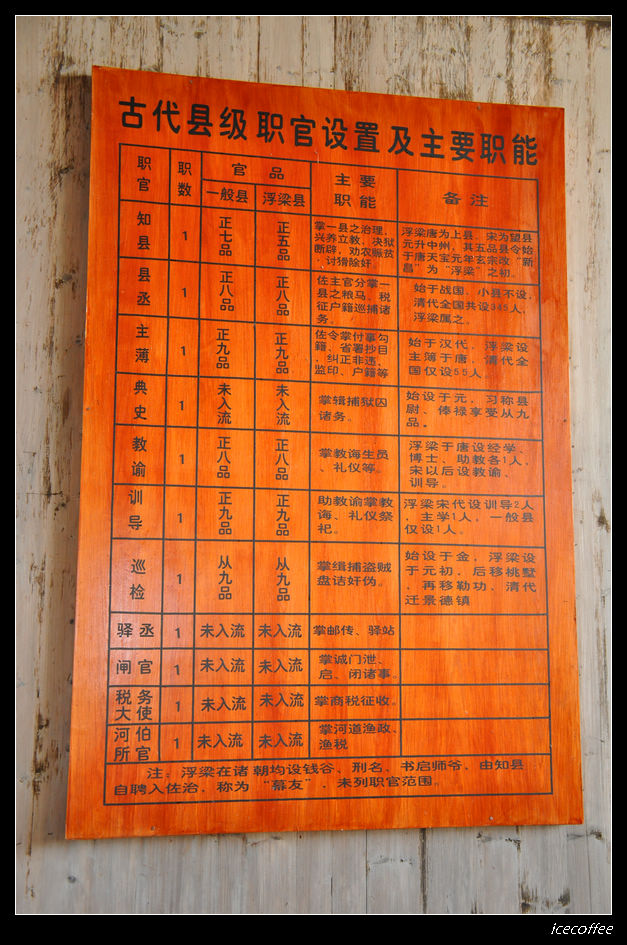 古代县级职官设置及主要职能
职官 职数 官品 主要职能 备注
一般县 浮梁县
知县 1 正七品 正五品 掌一县之治理、兴养立教、决狱断辟、劝农赈贫、讨猾除奸。 浮梁唐为上县，宋为望县元升中州，其五品县令始于唐天宝元年玄宗改“新昌”为“浮梁”之初。
县丞 1 正八品 正八品 佐主官分掌一县之粮马、税征户籍巡捕诸务。 始于战国，小县不设，清代全国共设345人，浮梁属之。
主薄 1 正九品 正九品 佐令掌付事勾籍、省署抄目、纠正非违、监印、户籍等 始于汉代，浮梁设主薄于唐，清代全国仅设55人
典史 1 未入流 未入流 掌辑捕狱囚诸务。 始设于元，习称县尉、俸禄享受从九品。
教谕 1 正八品 正八品 掌教诲生员、礼仪等。 浮梁于唐设经学、博士、助教各1人，宋以后设教谕、训导。
训导 1 正九品 正九品 助教谕掌教诲、礼仪祭祀。 浮梁宋代设训导2人，主学1人，一般县仅设1人。
巡检 1 从九品 从九品 掌缉捕盗贼盘诘奸伪。 始设于金，浮梁设于元初，后移桃墅，再移勒功、清代迁景德镇
驿丞 1 未入流 未入流 掌邮传、驿站
闸官 1 未入流 未入流 掌诚门泄、启、闭诸事。
税务大使 1 未入流 未入流 掌商税征收。
河伯所官 1 未入流 未入流 掌河道渔政、渔税
注：浮梁在诸朝均设钱谷、刑名、书启师爷，由知县
自聘入佐治，称为“幕友”，未列职官范围。
icecoffee